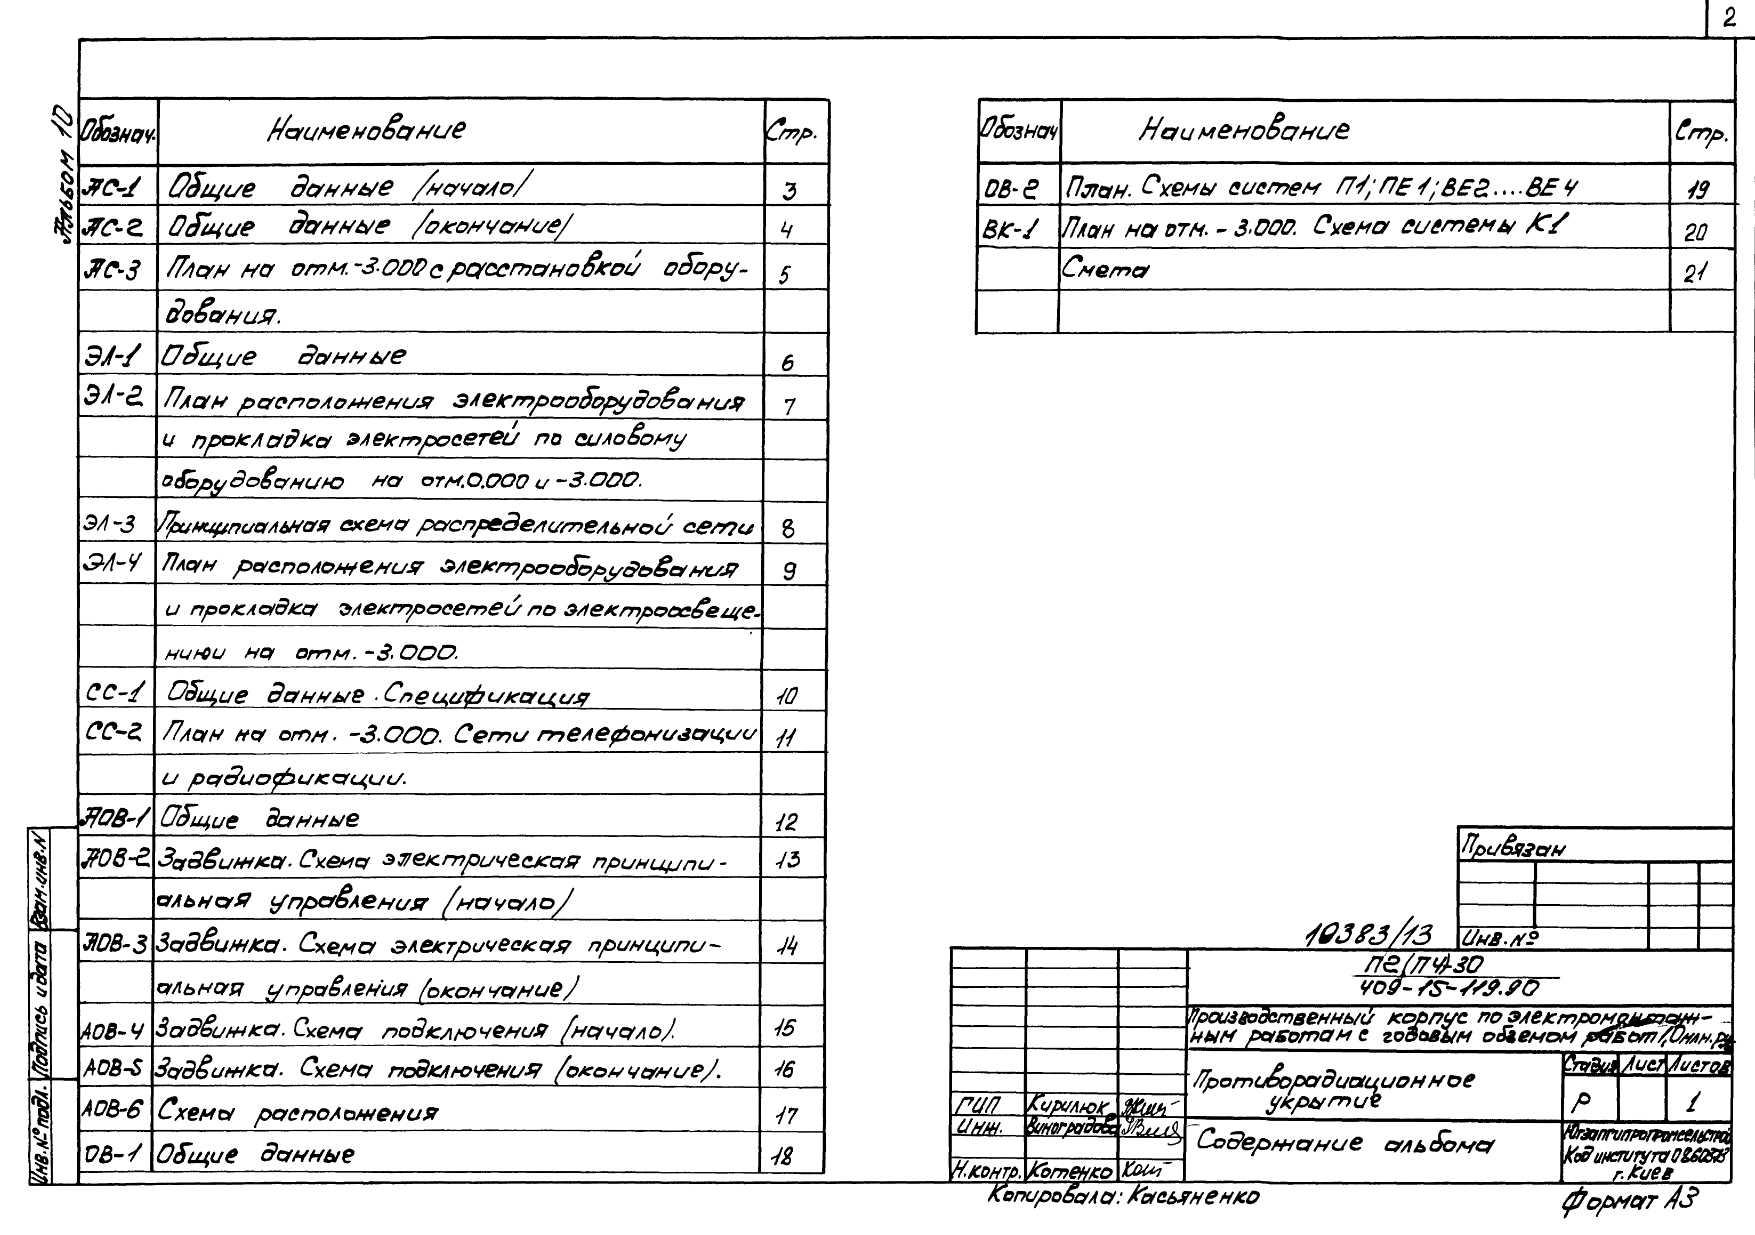 2
Альбом 10
Обознач. Наименование Стр.
АС-1 Общие данные /начало/ 3
АС-2 Общие данные /окончание/ 4
АС-3 План на отм.-3.000 с расстановкой обору- 5
дования.
ЭЛ-1 Общие данные 6
ЭЛ-2 План расположения электрооборудования 7
и прокладка электросетей по силовому
оборудованию на отм.0.000 и -3.000.
ЭЛ-3 Принципиальная схема распределительной сети 8
ЭЛ-4 План расположения электрооборудования 9
и прокладка электросетей по электроосвеще-
нию на отм. -3.000.
СС-1 Общие данные. Спецификация 10
СС-2 План на отм. -3.000. Сети телефонизации 11
и радиофикации.
АОВ-1 Общие данные 12
АОВ-2 Задвижка. Схема электрическая принципи- 13
альная управления (начало)
АОВ-3 Задвижка. Схема электрическая принципи- 14
альная управления (окончание)
АОВ-4 Задвижка. Схема подключения (начало). 15
АОВ-5 Задвижка. Схема подключения (окончание). 16
АОВ-6 Схема расположения 17
ОВ-1 Общие данные 18
Обознач Наименование Стр.
ОВ-2 План. Схемы систем П1; ПЕ1; ВЕ2....ВЕ4 19
ВК-1 План на отм. - 3.000. Схема системы К1 20
Смета 21
Взам.инв.N
Подпись и дата
Инв.№ подл.
Привязан
Инв.№
10383/13
П2(ПЧ)-30
409-15-119.90
Производственный корпус по электромонтаж-
ным работам с годовым объемом работ
Противорадиационное
укрытие
Стадия Лист Листов
Р 1
ГИП Кирилюк
Инж. Виноградова
Н.контр. Котенко
Содержание альбома
Югзапгипротрансельстрой
Код института
г. Киев
Копировала: Касьяненко
Формат А3